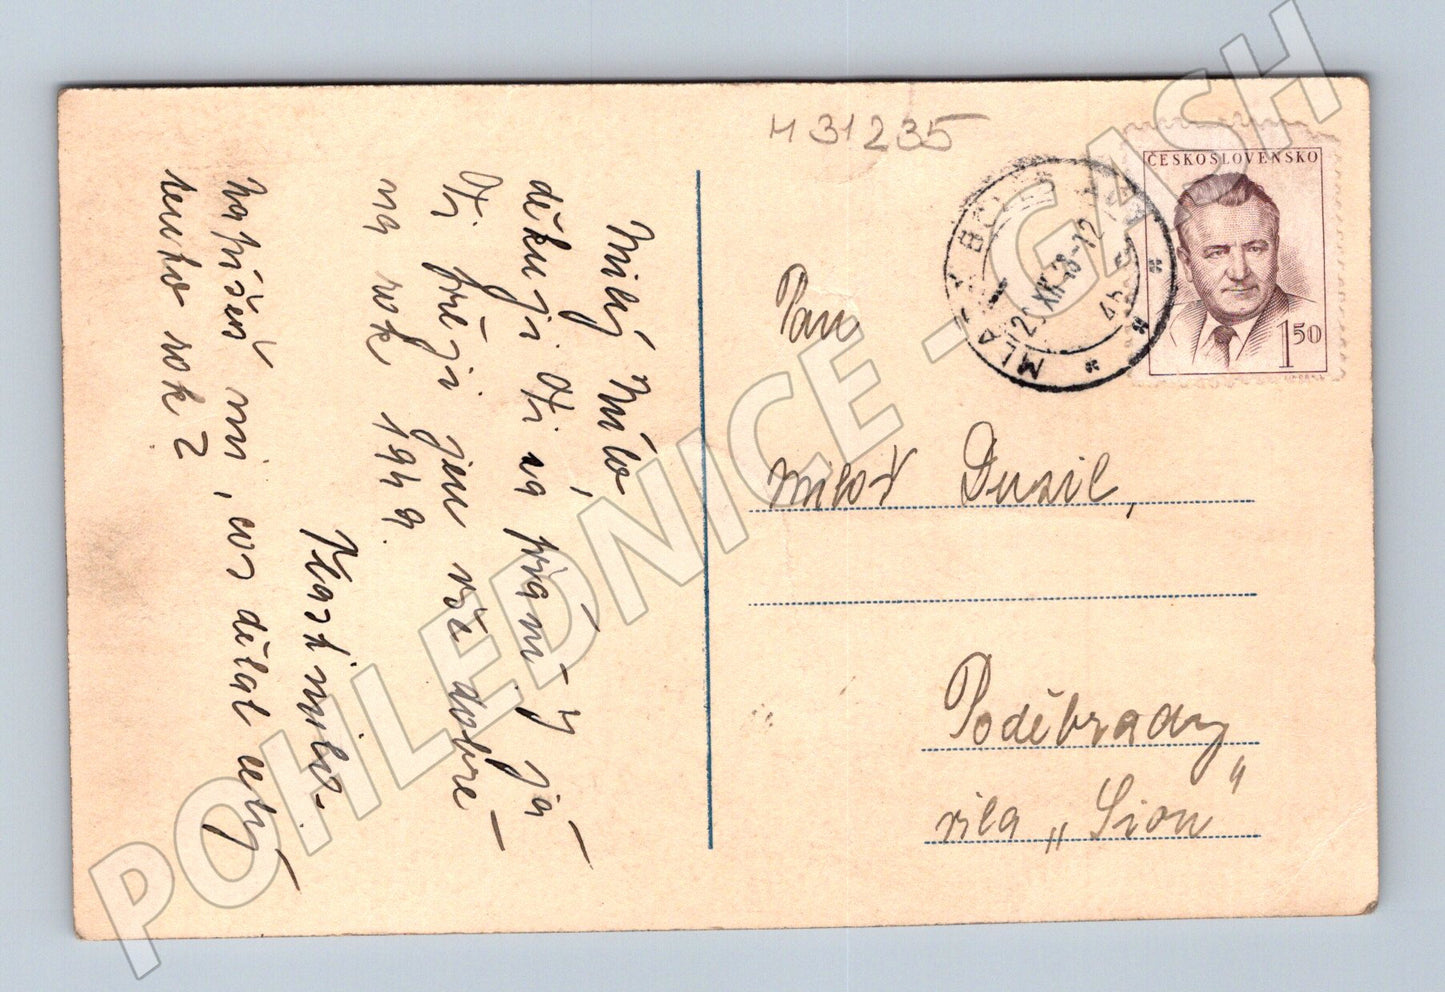 H 31235
ČESKOSLOVENSKO
1 50
MLADÁ BOLES
XII.48-12
Pan
Miloš Dusil,
Poděbrady
vila „Sion"
Milý Mílo,
děkuji Ti za přání, já
Ti přeji jen vše dobré
na rok 1949.
Vlastimila.
Napíšeš mi, co dělal celý
tento rok?
POHLEDNICE - GASH